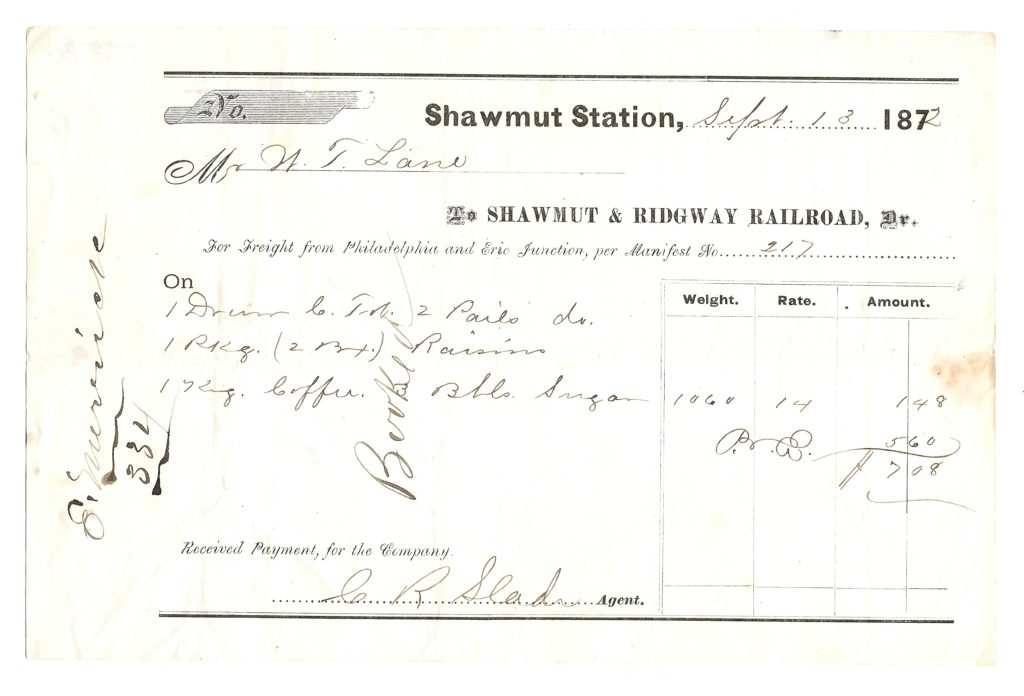 No.
Shawmut Station, Sept. 13 1872
Mr W. T. Lane
To SHAWMUT & RIDGWAY RAILROAD, Dr.
For Freight from Philadelphia and Erie Junction, per Manifest No. 217
On
Weight. Rate. Amount.
1 Drum C. Tob. 2 Pails do.
1 Pkg. (2 Bx.) Raisins
1 Kg. Coffee. 3 Bbls. Sugar 1060 14 1 48
P. & E. 5 60
$ 7 08
Received Payment, for the Company.
C R Slade Agent.
Booked
334